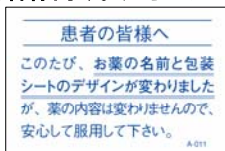 患者の皆様へ
このたび、お薬の名前と包装
シートのデザインが変わりました
が、薬の内容は変わりませんので、
安心して服用して下さい。
A-011